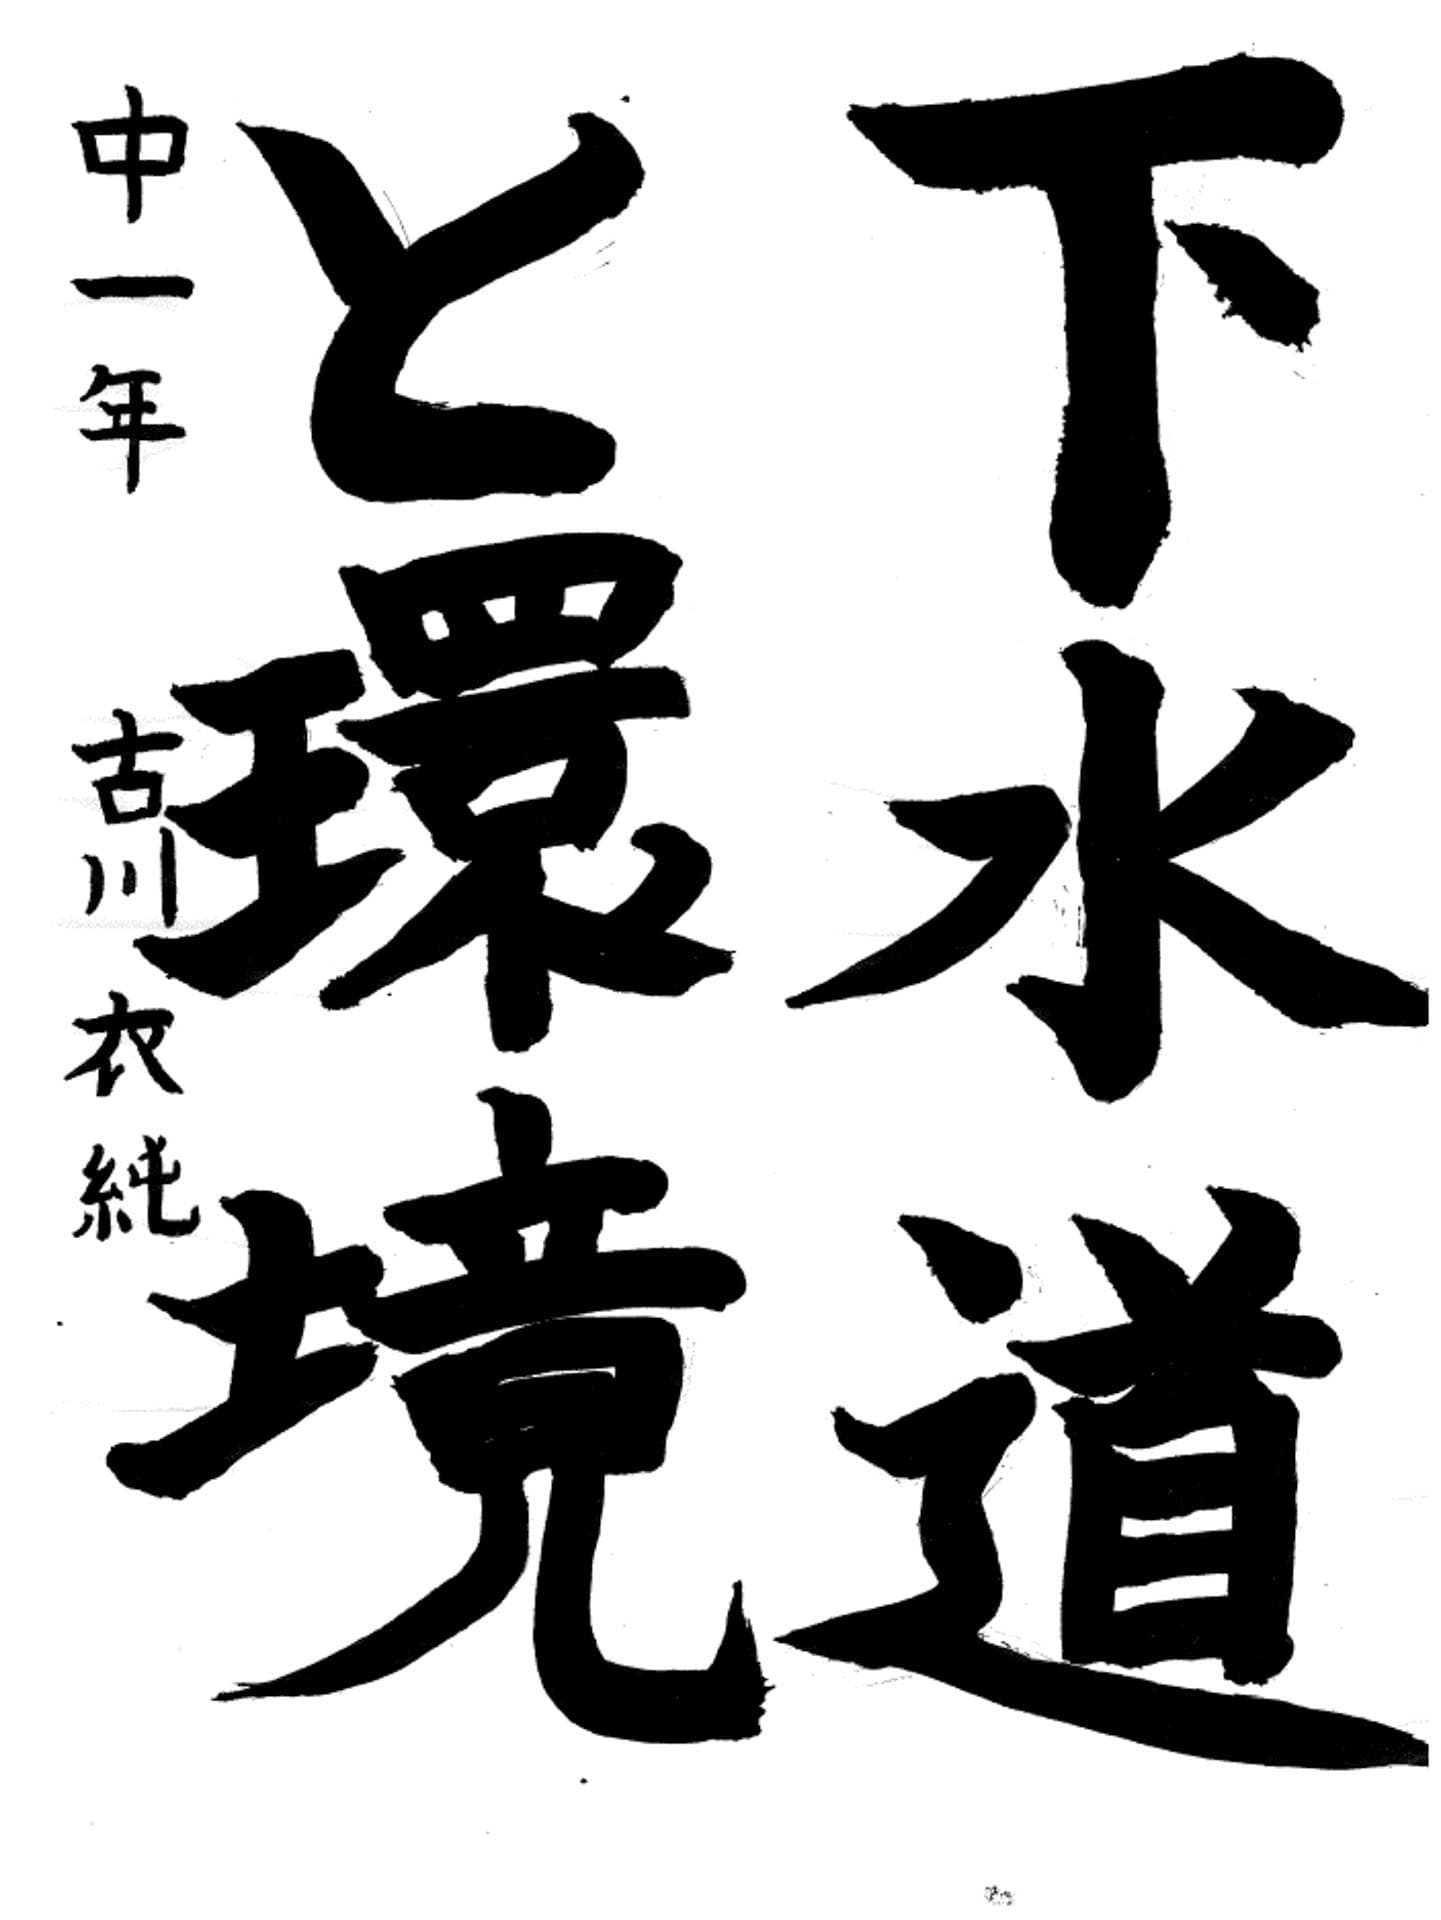 下水道
と環境
中一年 古川衣純